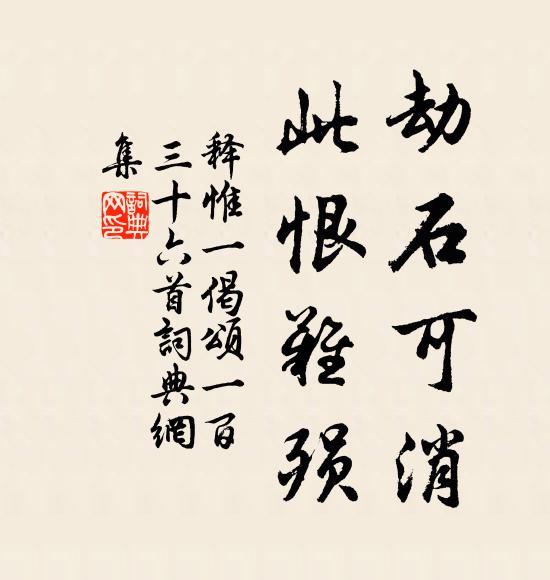 劫石可消
此恨難殞
释惟一偈頌一百
三十六首詞典網
集
詞典
网印